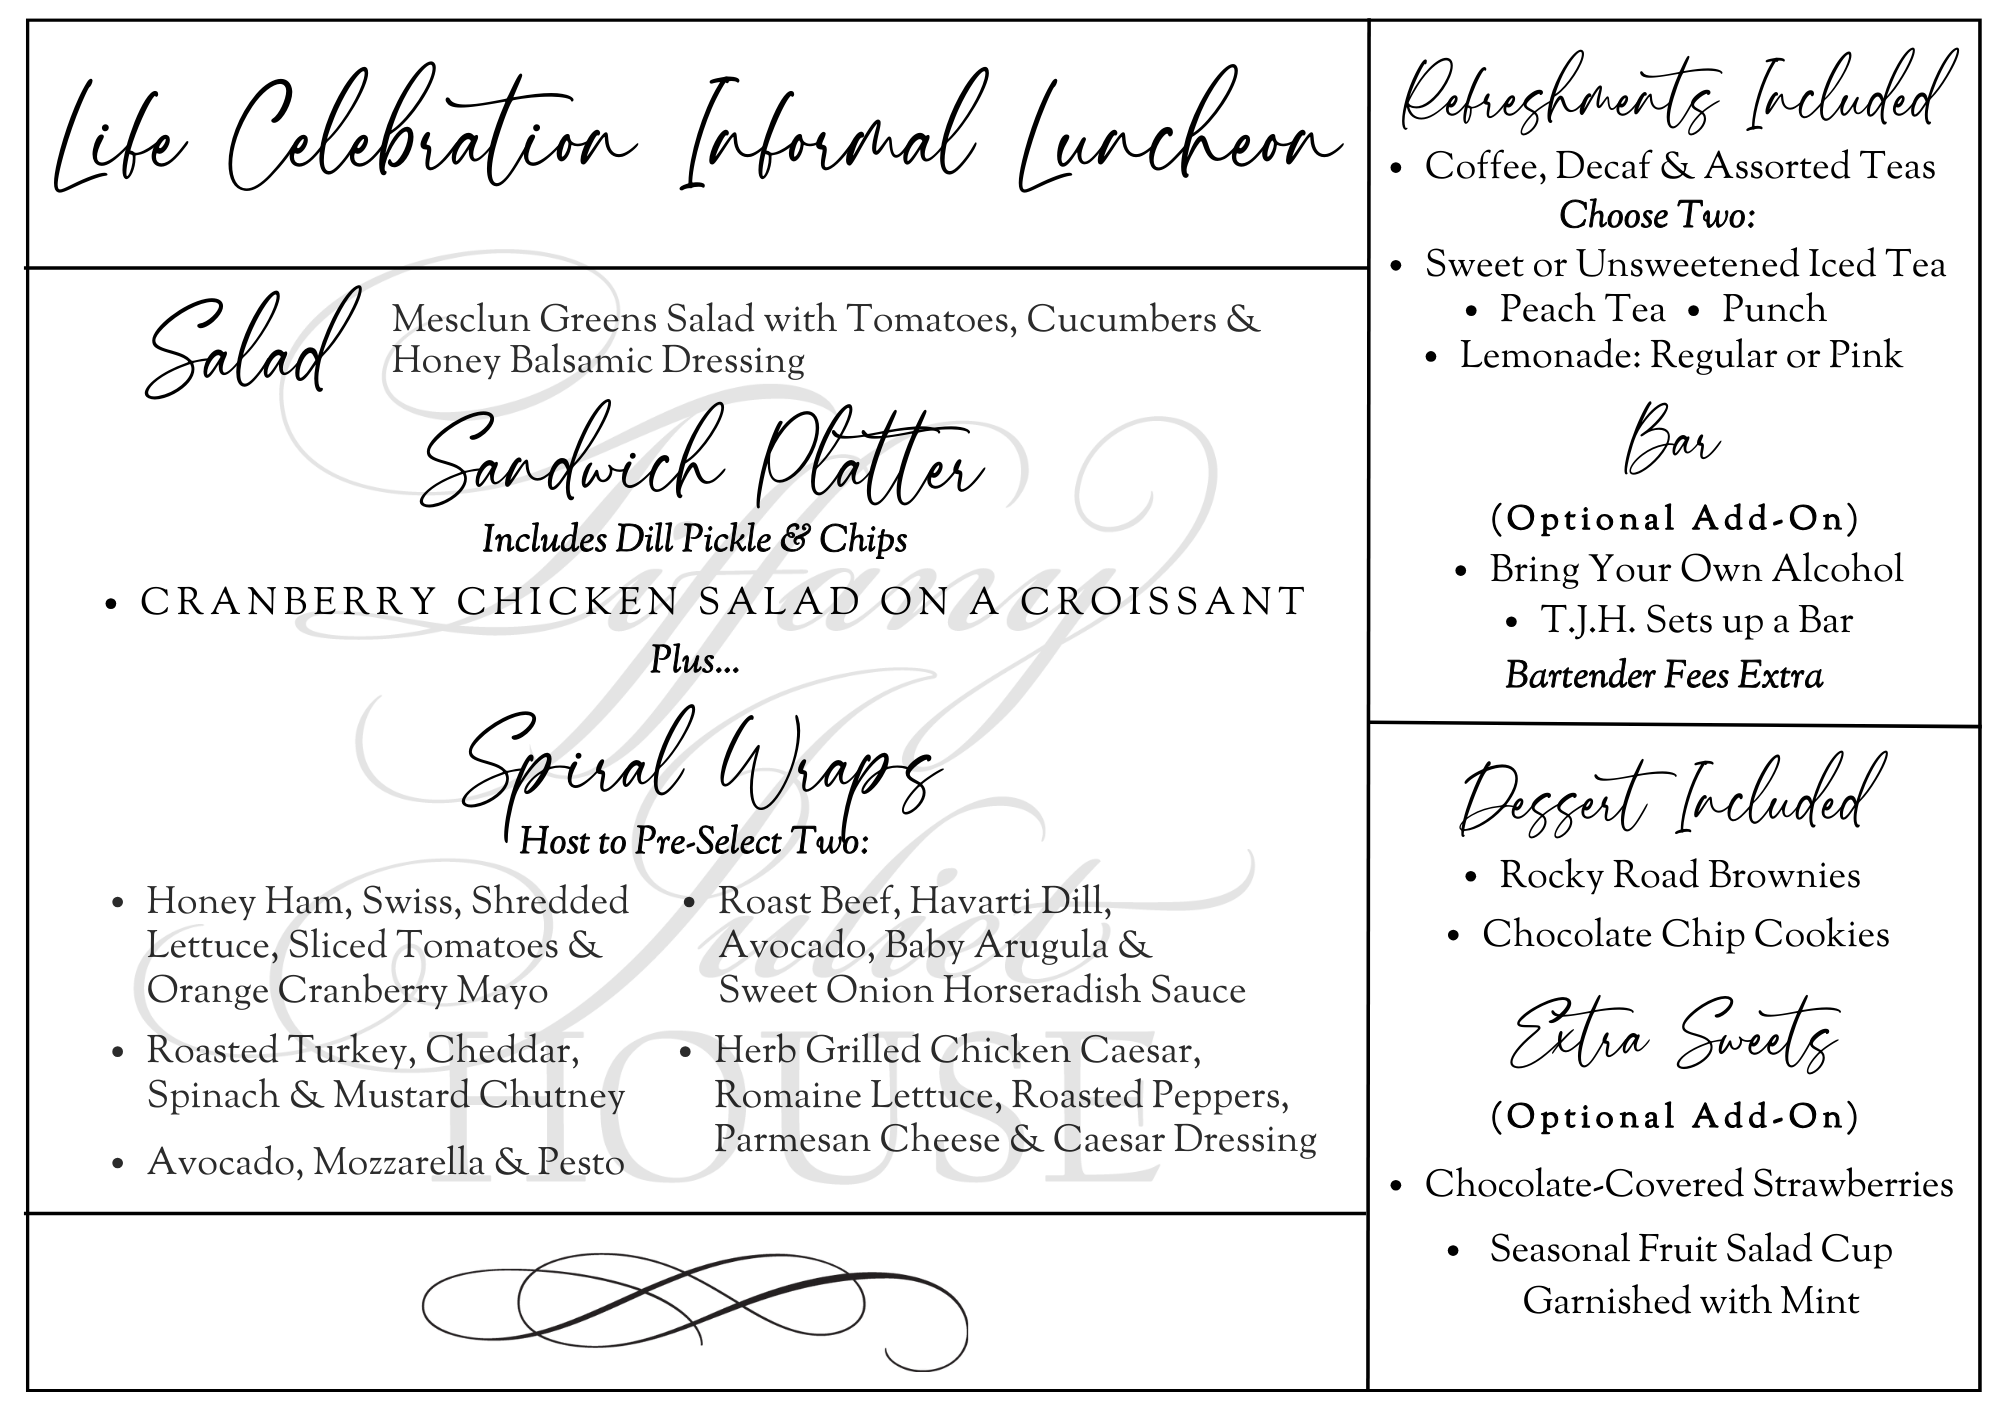 Life Celebration Informal Luncheon
Salad
Mesclun Greens Salad with Tomatoes, Cucumbers &
Honey Balsamic Dressing
Sandwich Platter
Includes Dill Pickle & Chips
• CRANBERRY CHICKEN SALAD ON A CROISSANT
Plus...
Spiral Wraps
Host to Pre-Select Two:
• Honey Ham, Swiss, Shredded
Lettuce, Sliced Tomatoes &
Orange Cranberry Mayo
• Roasted Turkey, Cheddar,
Spinach & Mustard Chutney
• Avocado, Mozzarella & Pesto
• Roast Beef, Havarti Dill,
Avocado, Baby Arugula &
Sweet Onion Horseradish Sauce
• Herb Grilled Chicken Caesar,
Romaine Lettuce, Roasted Peppers,
Parmesan Cheese & Caesar Dressing
Tiffany
Juliet
HOUSE
Refreshments Included
• Coffee, Decaf & Assorted Teas
Choose Two:
• Sweet or Unsweetened Iced Tea
• Peach Tea • Punch
• Lemonade: Regular or Pink
Bar
(Optional Add-On)
• Bring Your Own Alcohol
• T.J.H. Sets up a Bar
Bartender Fees Extra
Dessert Included
• Rocky Road Brownies
• Chocolate Chip Cookies
Extra Sweets
(Optional Add-On)
• Chocolate-Covered Strawberries
• Seasonal Fruit Salad Cup
Garnished with Mint